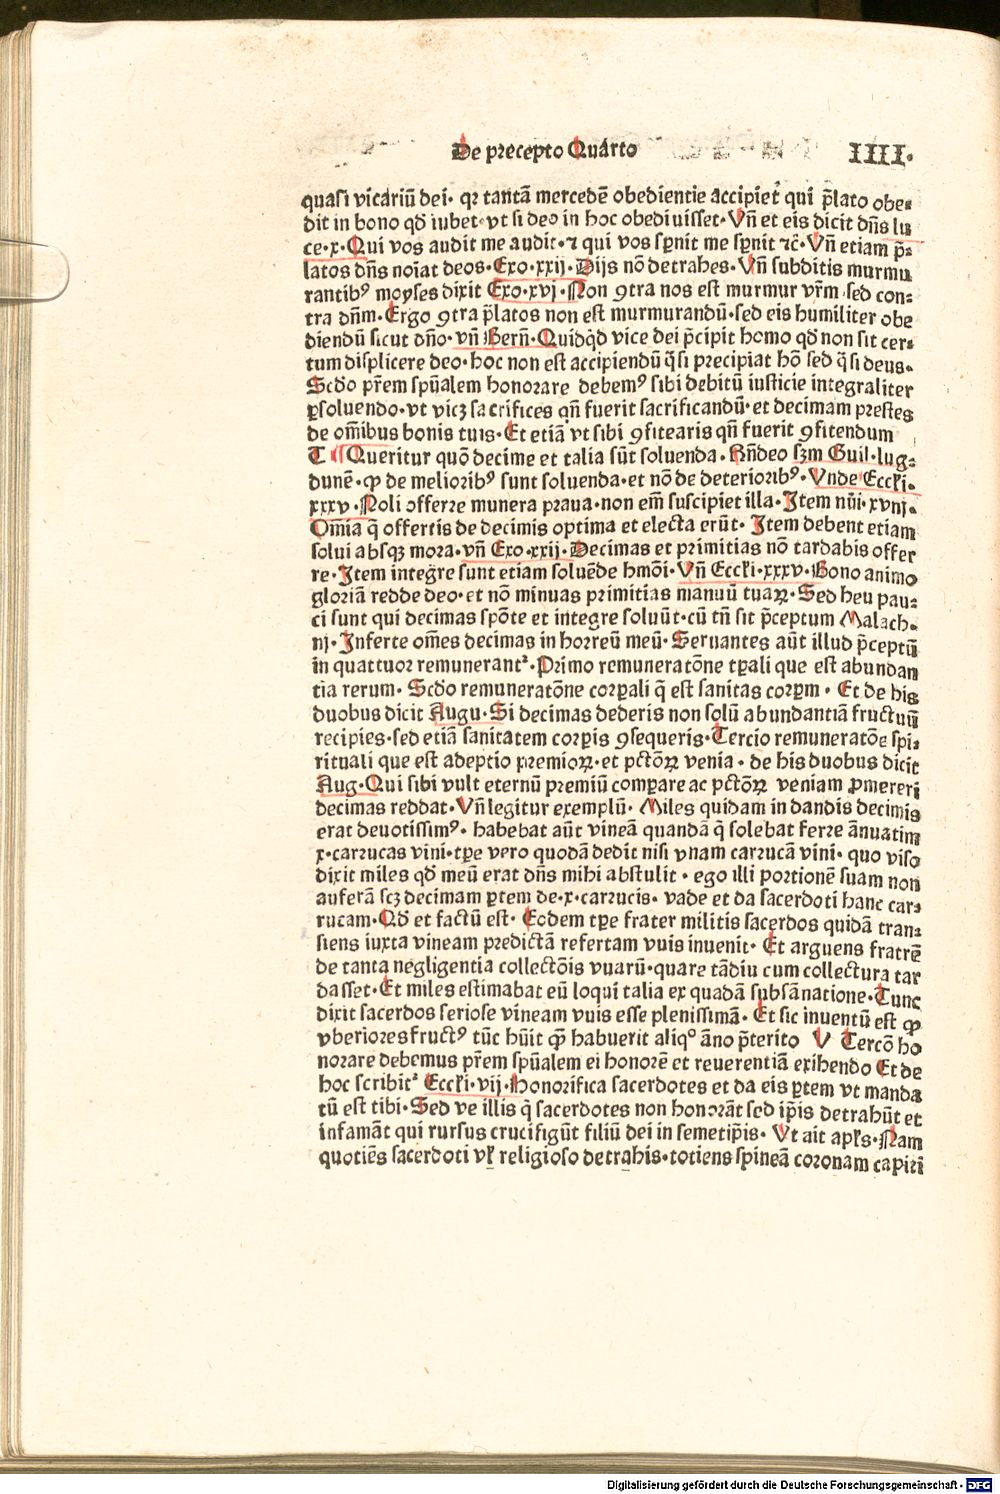 De precepto Quarto IIII.
quasi vicariũ dei· qꝛ tantã mercedẽ obedientie accipiet qui p̃lato obe⸗
dit in bono qđ iubet·vt si deo in hoc obediuisset·Vñ et eis dicit dñs lu
ce·x·Qui vos audit me audit·⁊ qui vos spnit me spnit ⁊c̃·Vñ etiam p̃⸗
latos dñs noĩat deos·Exo·xxij·Dijs nõ detrahes·Vñ subditis murmu
rantibꝰ moyses dixit Exo·xvj·Non ꝯtra nos est murmur vr̃m sed con⸗
tra dñm·Ergo ꝯtra p̃latos non est murmurandũ·sed eis humiliter obe
diendũ sicut dño·vñ Bern̄·Quidq̇d vice dei p̃cipit homo qđ non sit cer⸗
tum displicere deo·hoc non est accipiendũ q̃si precipiat hõ sed q̃si deus·
Scđo pr̃em spũalem honorare debemꝰ sibi debitũ iusticie integraliter
ꝑsoluendo·vt vicꝫ sacrifices qñ fuerit sacrificandũ·et decimam prestes
de om̃ibus bonis tuis·Et etiã vt sibi ꝯfitearis qñ fuerit ꝯfitendum
T Queritur quõ decime et talia sũt soluenda·Rñdeo sꝫm Guil·lug⸗
dunẽ·ꝙ de melioribꝰ sunt soluenda·et nõ de deterioribꝰ·Vnde Eccłi·
xxxv·Noli offerre munera praua·non em̃ suscipiet illa·Item nũi·xvnj·
Om̃ia q̃ offertis de decimis optima et electa erũt·Item debent etiam
solui absqꝫ mora·vñ Exo·xxij·Decimas et primitias nõ tardabis offer
re·Item integre sunt etiam soluẽde hmõi·Vñ Eccłi·xxxv·Bono animo
gloriã redde deo·et nõ minuas primitias manuũ tuaꝝ·Sed heu pau⸗
ci sunt qui decimas spõte et integre soluũt·cũ tñ sit p̃ceptum Malach·
nj·Inferte om̃es decimas in horreũ meũ·Seruantes aũt illud p̃ceptũ
in quattuor remunerantᷣ·Primo remuneratõne tꝑali que est abundan
tia rerum·Scđo remuneratõne corꝑali q̃ est sanitas corꝑm·Et de his
duobus dicit Augu·Si decimas dederis non solũ abundantiã fructuũ
recipies·sed etiã sanitatem corꝑis ꝯsequeris·Tercio remuneratõe spi⸗
rituali que est adeptio premioꝝ·et pctõꝝ venia·de his duobus dicit
Aug·Qui sibi vult eternũ premiũ comꝑare ac pctõꝝ veniam ꝓmereri
decimas reddat·Vñ legitur exemplũ·Miles quidam in dandis decimis
erat deuotissimꝰ·habebat aũt vineã quandã q̃ solebat ferre ãnuatim
x·carrucas vini·tꝑe vero quodã dedit nisi vnam carrucã vini·quo viso
dixit miles qđ meũ erat dñs mihi abstulit·ego illi portionẽ suam non
auferã scꝫ decimam ꝑtem de·x·carrucis·vade et da sacerdoti hanc car⸗
rucam·Qđ et factũ est·Eodem tꝑe frater militis sacerdos quidã tran⸗
siens iuxta vineam predictã refertam vuis inuenit·Et arguens fratrẽ
de tanta negligentia collectõis vuarũ·quare tãdiu cum collectura tar
dasset·Et miles estimabat eũ loqui talia ex quadã subsãnatione·Tunc
dixit sacerdos seriose vineam vuis esse plenissimã·Et sic inuentũ est ꝙ
vberiores fructꝰ tũc hũit ꝙ̃ habuerit aliqͦ ãno p̃terito V Tercõ ho
norare debemus pr̃em spũalem ei honorẽ et reuerentiã exihendo Et de
hoc scribitᷣ Eccłi·vij·Honorifica sacerdotes et da eis ꝑtem vt manda
tũ est tibi·Sed ve illis q̃ sacerdotes non honorãt sed ip̃is detrahũt et
infamãt qui rursus crucifigũt filiũ dei in semetip̃is·Vt ait apłs·Nam
quotiẽs sacerdoti vł religioso detrahis·totiens spineã coronam capiti
Digitalisierung gefördert durch die Deutsche Forschungsgemeinschaft · DFG